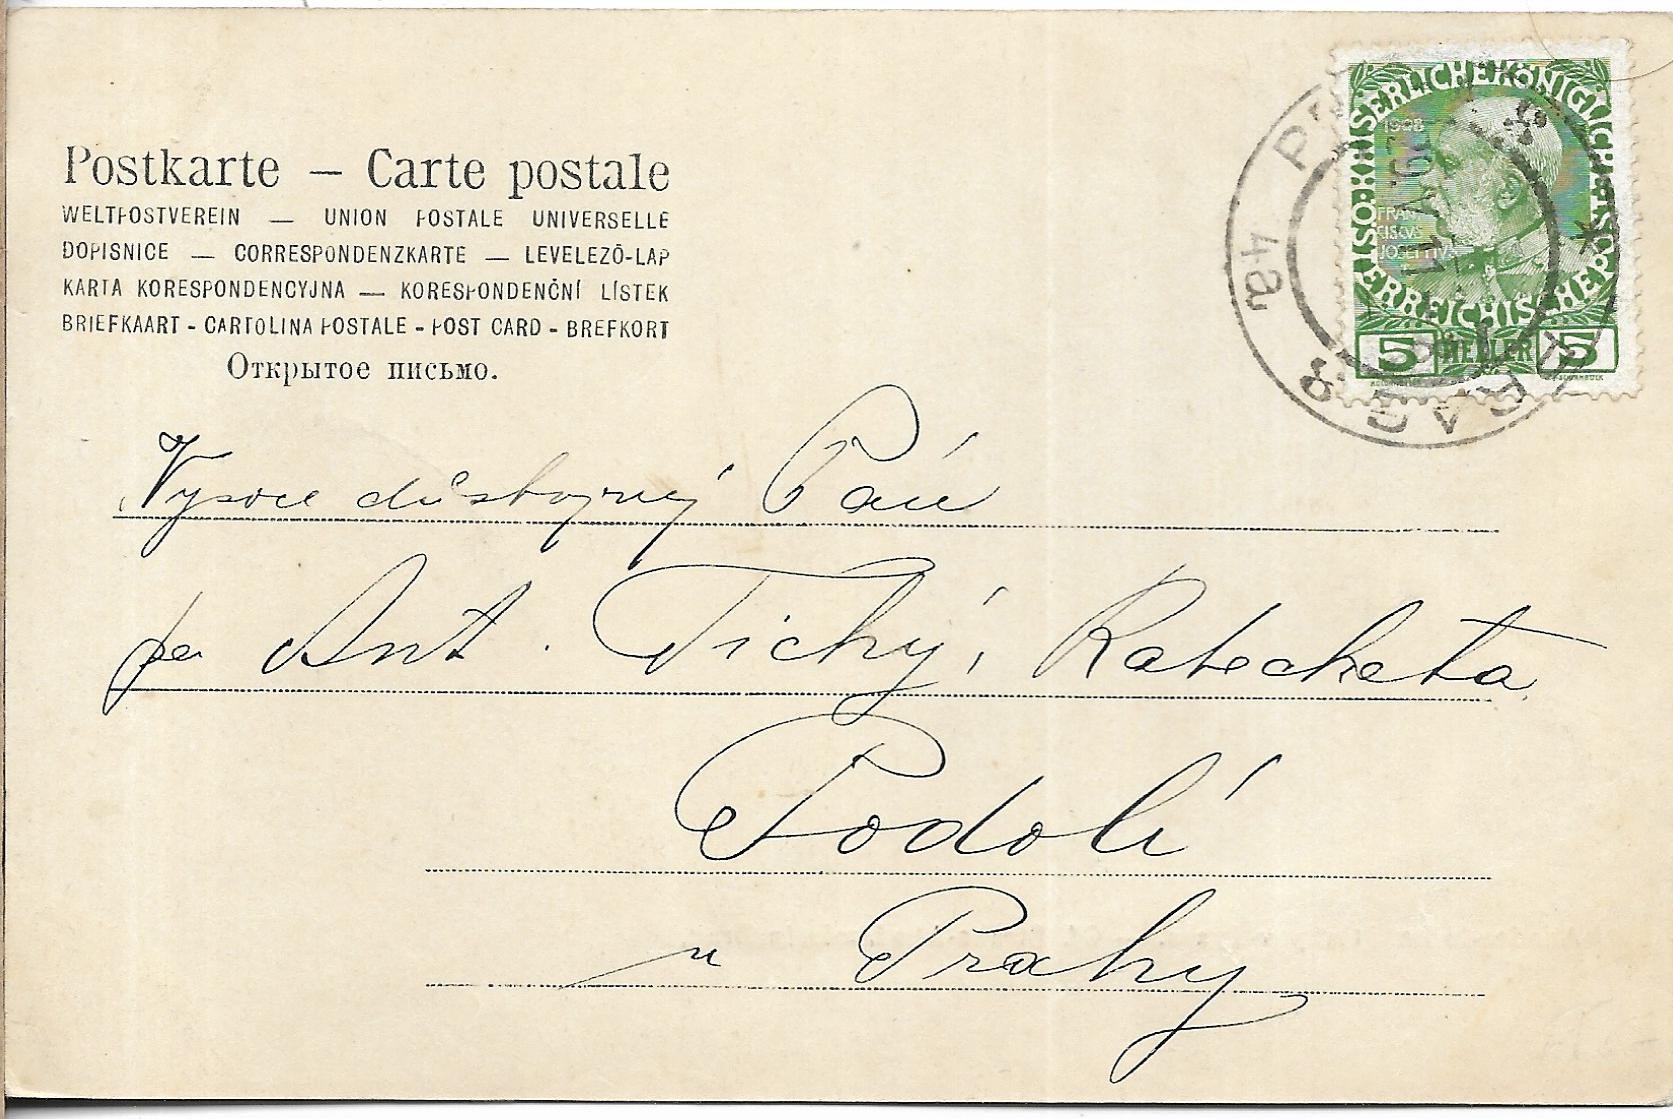 Postkarte – Carte postale
WELTPOSTVEREIN — UNION POSTALE UNIVERSELLE
DOPISNICE — CORRESPONDENZKARTE — LEVELEZŐ-LAP
KARTA KORESPONDENCYJNA — KORESPONDENČNÍ LÍSTEK
BRIEFKAART - CARTOLINA POSTALE - POST CARD - BREFKORT
Открытое письмо.
KAISERLICHEKÖNIGLICHE ÖSTERREICHISCHE POST
1908
FRAN
CISCVS
JOSEPHVS
5 HELLER 5
PRAG 8
4a
Vysoce důstojný Pán
Ant. Tichý, Katecheta
Podolí
u Prahy